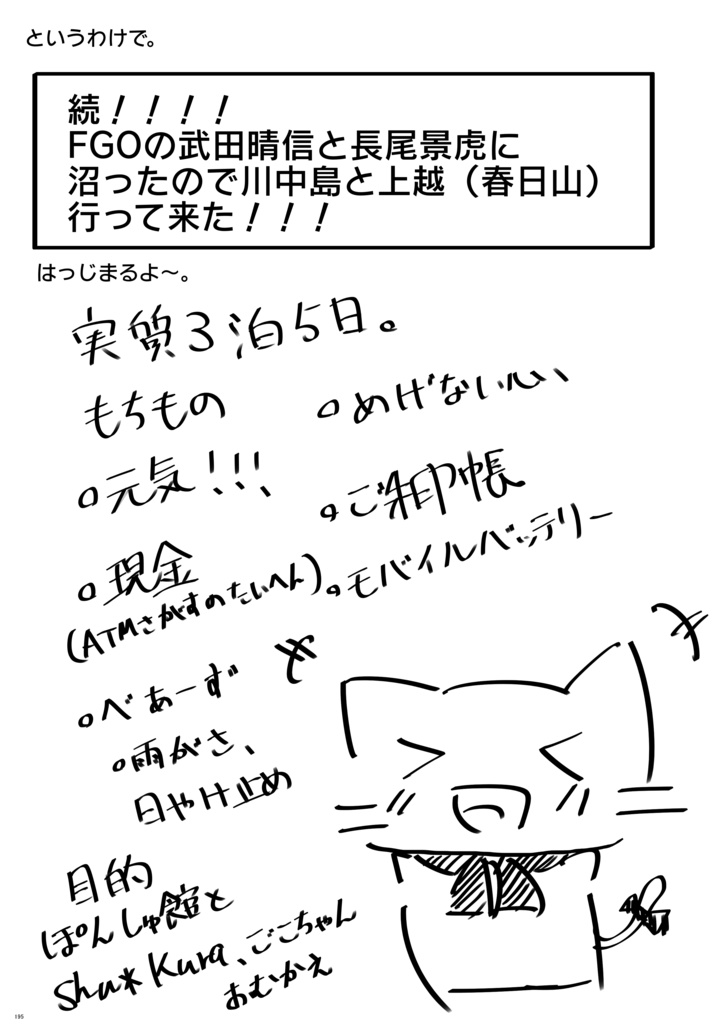 というわけで。
続！！！！
FGOの武田晴信と長尾景虎に
沼ったので川中島と上越（春日山）
行って来た！！！
はっじまるよ～。
実質3泊5日。
もちもの
○元気!!!
○現金
(ATMさがすのたいへん)
○べあーず
○雨がさ、
日やけ止め
○めげない心
○ご朱印帳
○モバイルバッテリー
目的
ぽんしゅ館と
Shu*Kura、ごこちゃん
おむかえ
195